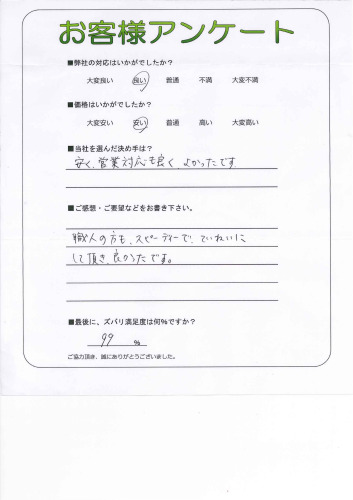 お客様アンケート
■弊社の対応はいかがでしたか？
大変良い 良い 普通 不満 大変不満
■価格はいかがでしたか？
大変安い 安い 普通 高い 大変高い
■当社を選んだ決め手は？
安く、営業対応も良く、よかったです
■ご感想・ご要望などをお書き下さい。
職人の方も、スピーディーで、ていねいに
して頂き、良かったです。
■最後に、ズバリ満足度は何%ですか？
99 %
ご協力頂き、誠にありがとうございました。